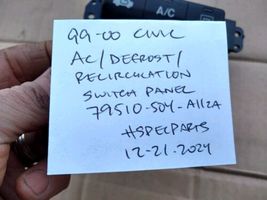 A/C
99-00 CIVIC
AC/DEFROST/
RECIRCULATION
SWITCH PANEL
79510-S04-A11ZA
#SPECPARTS
12-21.2024